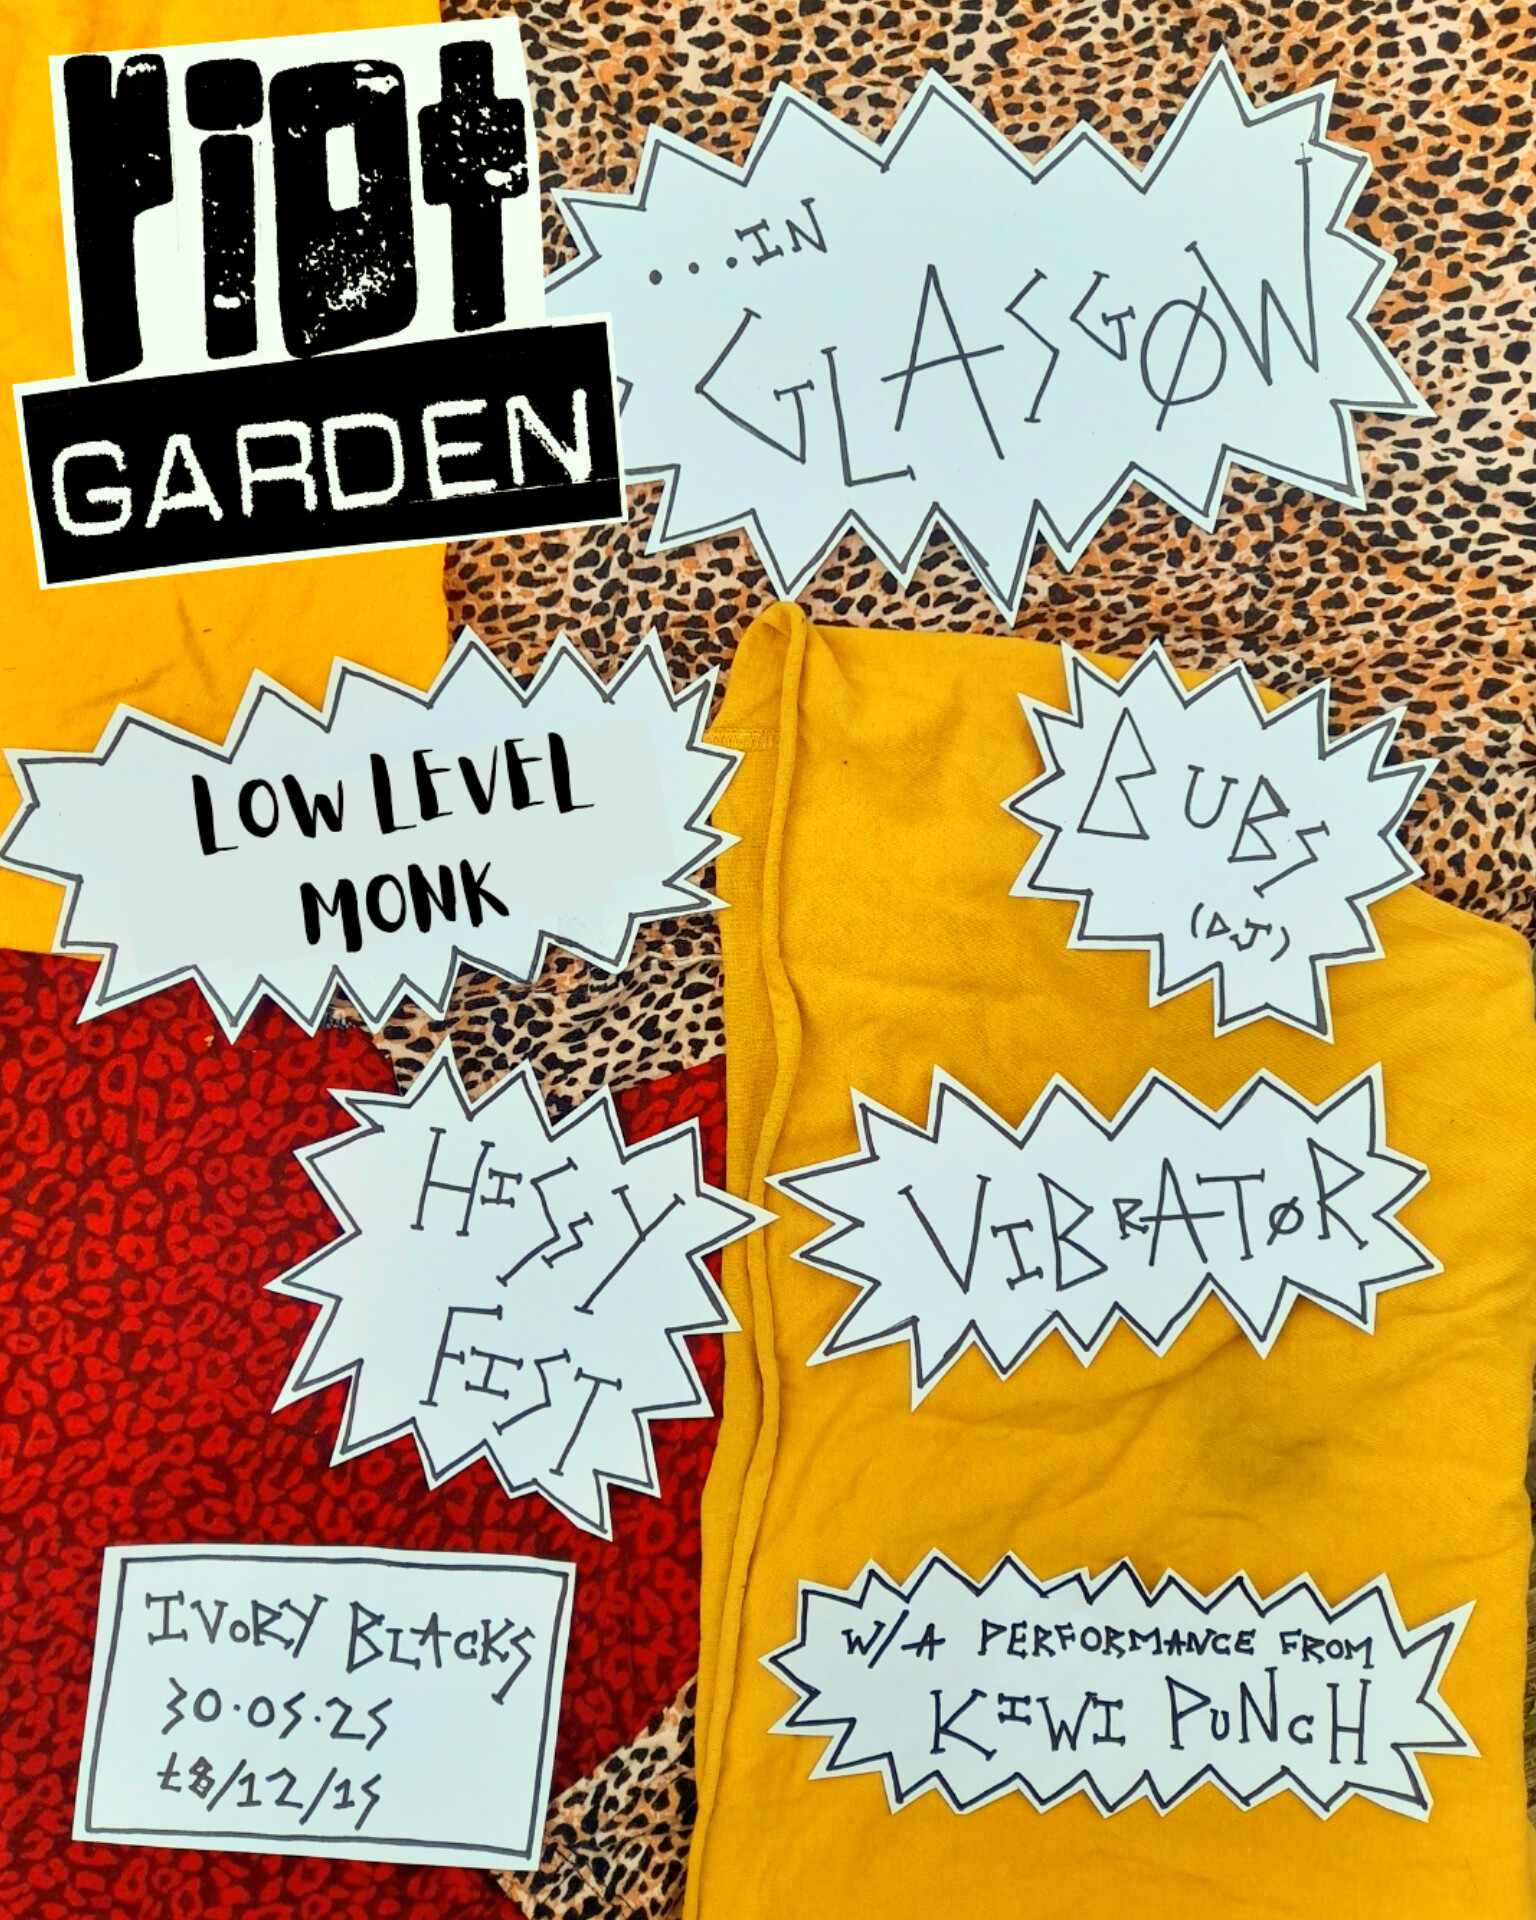 riot
GARDEN
...IN
GLASGØW
LOW LEVEL
MONK
BUBS
(DJ)
HISSY
FIST
VIBRATØR
IVORY BLACKS
30.05.25
£8/12/15
W/A PERFORMANCE FROM
KIWI PUNCH